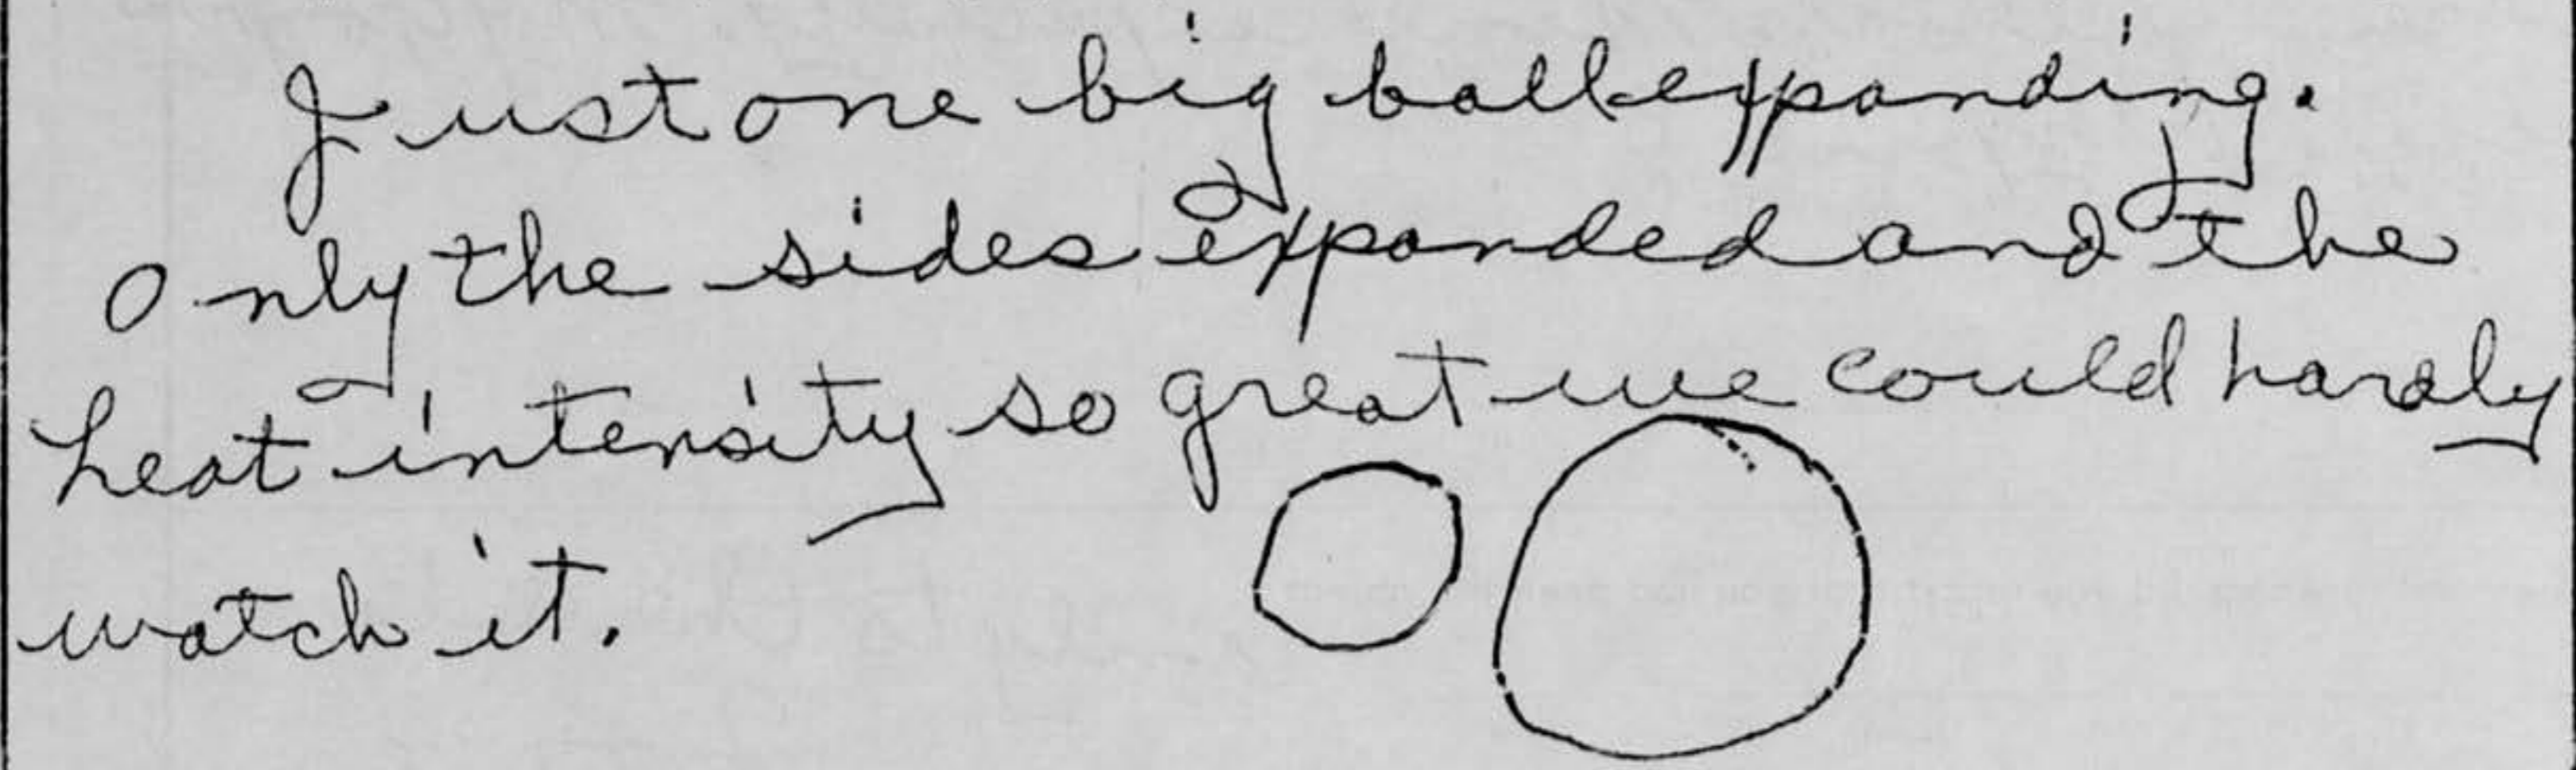 Just one big ball expanding.
Only the sides expanded and the
heat intensity so great we could hardly
watch it.